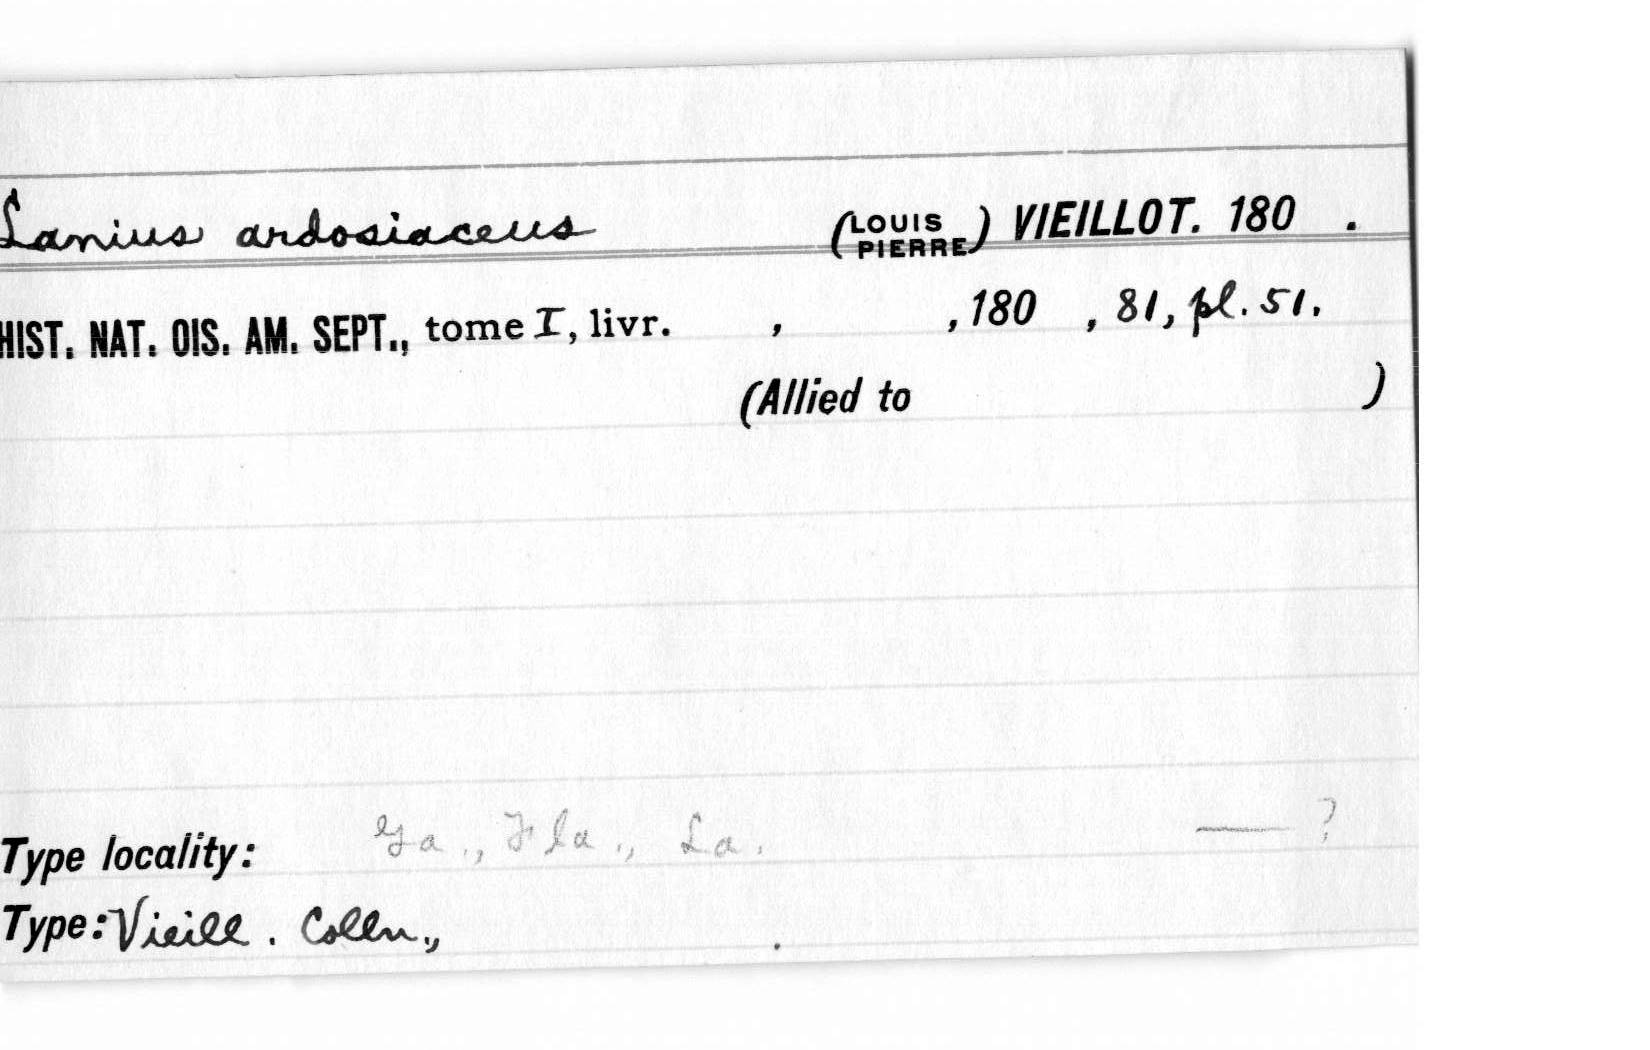 Lanius ardosiaceus (LOUIS PIERRE) VIEILLOT. 180 .
HIST. NAT. OIS. AM. SEPT., tome I, livr. , ,180 , 81, pl. 51.
(Allied to )
Type locality: Ga., Fla., La. — ?
Type: Vieill. Colln., .